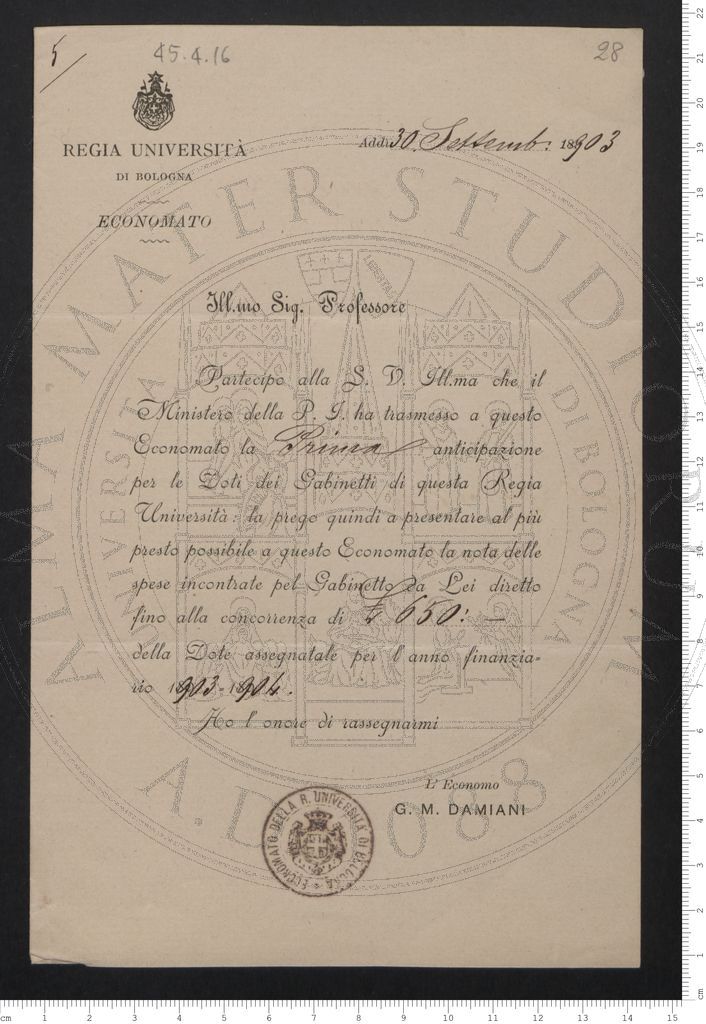 5
45.4.16
28
REGIA UNIVERSITÀ
DI BOLOGNA
ECONOMATO
Addì 30 Settemb: 18903
Ill.mo Sig. Professore
Partecipo alla S. V. Ill.ma che il
Ministero della P. I. ha trasmesso a questo
Economato la Prima anticipazione
per le Doti dei Gabinetti di questa Regia
Università: la prego quindi a presentare al più
presto possibile a questo Economato la nota delle
spese incontrate pel Gabinetto da Lei diretto
fino alla concorrenza di £ 650: —
della Dote assegnatale per l'anno finanzia-
rio 18903-18904.
Ho l'onore di rassegnarmi
L'Economo
G. M. DAMIANI
ECONOMATO DELLA R. UNIVERSITÀ DI BOLOGNA
ALMA MATER STUDIORUM
UNIVERSITÀ DI BOLOGNA
A.D. 1088